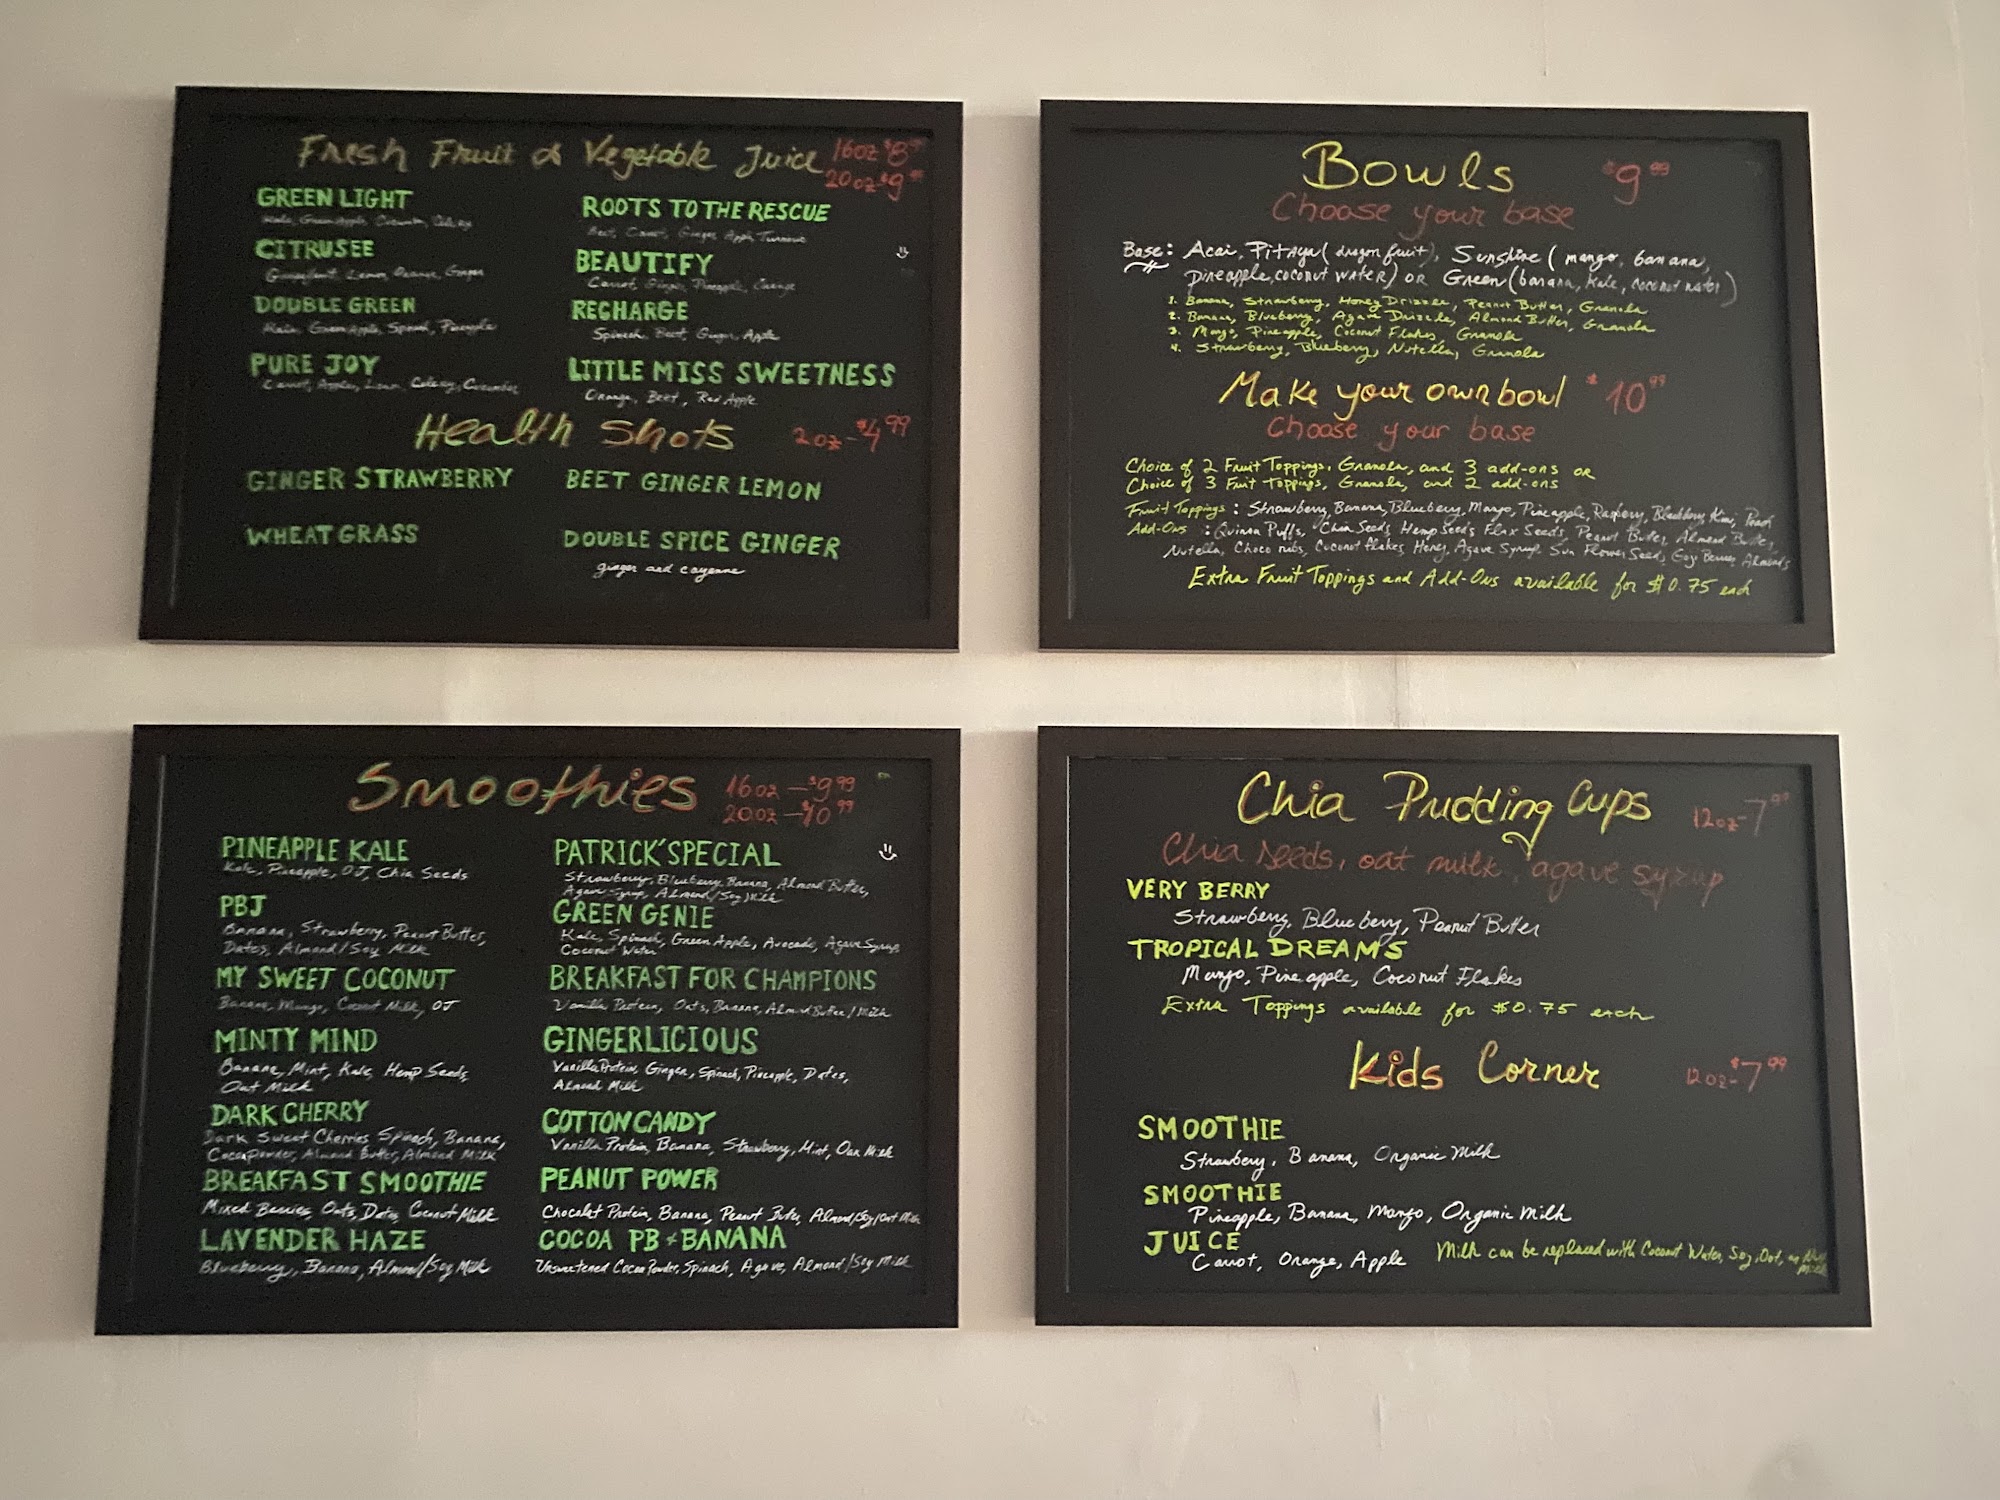 Fresh Fruit & Vegetable Juice 16oz $8.99
20oz-$9.99
GREEN LIGHT
Kale, Green Apple, Cucumber, Celery
CITRUSEE
Grapefruit, Lemon, Orange, Ginger
DOUBLE GREEN
Green Apple, Spinach, Pineapple
PURE JOY
Carrot, Apples, Lemon, Celery, Cucumber
ROOTS TO THE RESCUE
Beet, Carrot, Ginger, Apple, Turmeric
BEAUTIFY
Carrot, Ginger, Pineapple, Orange
RECHARGE
Spinach, Beet, Ginger, Apple
LITTLE MISS SWEETNESS
Orange, Beet, Red Apple
Health Shots 2oz-$4.99
GINGER STRAWBERRY
WHEAT GRASS
BEET GINGER LEMON
DOUBLE SPICE GINGER
ginger and cayenne
Bowls $9.99
Choose your base
Base: Acai, Pitaya (dragon fruit), Sunshine (mango, banana,
pineapple, coconut water) OR Green (banana, Kale, coconut water)
1. Banana, Strawberry, Honey Drizzle, Peanut Butter, Granola
2. Banana, Blueberry, Agave Drizzle, Almond Butter, Granola
3. Mango, Pineapple, Coconut Flakes, Granola
4. Strawberry, Blueberry, Nutella, Granola
Make your own bowl $10.99
Choose your base
Choice of 2 Fruit Toppings, Granola, and 3 add-ons OR
Choice of 3 Fruit Toppings, Granola, and 2 add-ons
Fruit Toppings: Strawberry, Banana, Blueberry, Mango, Pineapple, Raspberry, Blackberry, Kiwi, Peach
Add-Ons: Quinoa Puffs, Chia Seeds, Hemp Seeds, Flax Seeds, Peanut Butter, Almond Butter,
Nutella, Choco nibs, Coconut flakes, Honey, Agave Syrup, Sun Flower Seed, Goji Berries, Almonds
Extra Fruit Toppings and Add-Ons available for $0.75 each
Smoothies 16oz-$9.99
20oz-$10.99
PINEAPPLE KALE
Kale, Pineapple, OJ, Chia Seeds
PBJ
Banana, Strawberry, Peanut Butter,
Dates, Almond/Soy Milk
MY SWEET COCONUT
Banana, Mango, Coconut Milk, OJ
MINTY MIND
Banana, Mint, Kale, Hemp Seeds,
Oat Milk
DARK CHERRY
Dark Sweet Cherries, Spinach, Banana,
Cocoa Powder, Almond Butter, Almond Milk
BREAKFAST SMOOTHIE
Mixed Berries, Oats, Dates, Coconut Milk
LAVENDER HAZE
Blueberry, Banana, Almond/Soy Milk
PATRICK'SPECIAL
Strawberry, Blueberry, Banana, Almond Butter,
Agave Syrup, Almond/Soy Milk
GREEN GENIE
Kale, Spinach, Green Apple, Avocado, Agave Syrup,
Coconut Water
BREAKFAST FOR CHAMPIONS
Vanilla Protein, Oats, Banana, Almond Butter/Milk
GINGERLICIOUS
Vanilla Protein, Ginger, Spinach, Pineapple, Dates,
Almond Milk
COTTON CANDY
Vanilla Protein, Banana, Strawberry, Mint, Oat Milk
PEANUT POWER
Chocolat Protein, Banana, Peanut Butter, Almond/Soy/Oat Milk
COCOA PB + BANANA
Unsweetened Cocoa Powder, Spinach, Agave, Almond/Soy Milk
Chia Pudding Cups 12oz-7.99
Chia seeds, oat milk, agave syrup
VERY BERRY
Strawberry, Blueberry, Peanut Butter
TROPICAL DREAMS
Mango, Pineapple, Coconut Flakes
Extra Toppings available for $0.75 each
Kids Corner 12oz-$7.99
SMOOTHIE
Strawberry, Banana, Organic Milk
SMOOTHIE
Pineapple, Banana, Mango, Organic Milk
JUICE
Carrot, Orange, Apple Milk can be replaced with Coconut Water, Soy, Oat, or
Milk